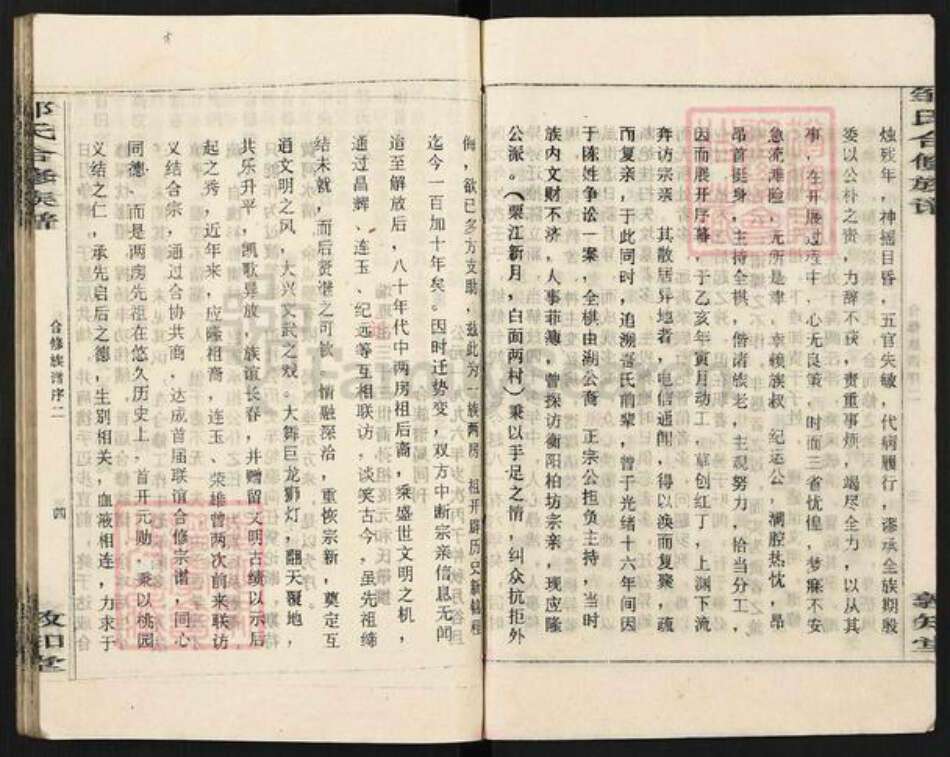 邹氏合修族谱
敦知堂
烛残年，神摇目昏，五官失敏，代病履行，谬承全族期殷
委以公朴之责，力辞不获，责重事烦，竭尽全力，以从其
事，在开展过程中，心无良策，时而三省忧惶，梦寐不安
急流滩险，无所是幸，幸赖族叔，纪运公，满腔热忱，昂
昂首挺身，主持全棋，偕诸族老，主观努力，恰当分工，
因而展开序幕，于乙亥年寅月动工，草创红丁，上渊下流
奔访宗亲，其散居异地者，电信通闻，得以涣而复聚，疏
而复亲，于此同时，追溯吾氏前辈，曾于光绪十六年间因
于陈姓争讼一案，全棋由湖公裔，正宗公担负主持，当时
族内文财不济，人事菲薄，曾探访衡阳柏坊宗亲，现应隆
公派。（栗江新月，白面两村）秉以手足之情，纠众抗拒外
侮，欲已多方支助，兹此为一族两房，祖开辟历史新锦程
迄今一百加十年矣。因时迁势变，双方中断宗亲信息无闻
追至解放后，八十年代中两房祖后裔，乘盛世文明之机，
通过昌辉、连玉、纪远等互相联访，谈笑古今，虽先祖缔
结未就，而后贤潜之可钦，情融深洽，重恢宗新，奠定互
遒文明之风，大兴文武之戏。大舞巨龙狮灯，翻天覆地，
其乐升平，凯歌异放，族谊长春，并赠留文明古绩以示后
起之秀，近年来，应隆祖裔，连玉、荣雄曾两次前来联访
义结合宗，通过合协共商，达成首届联谊合修宗谱，同心
同德、而是两房先祖在悠久历史上，首开元勋，秉以桃园
义结之仁，承先启后之德，生别相关，血液相连，力求于
合修族谱序二
四
敦知堂